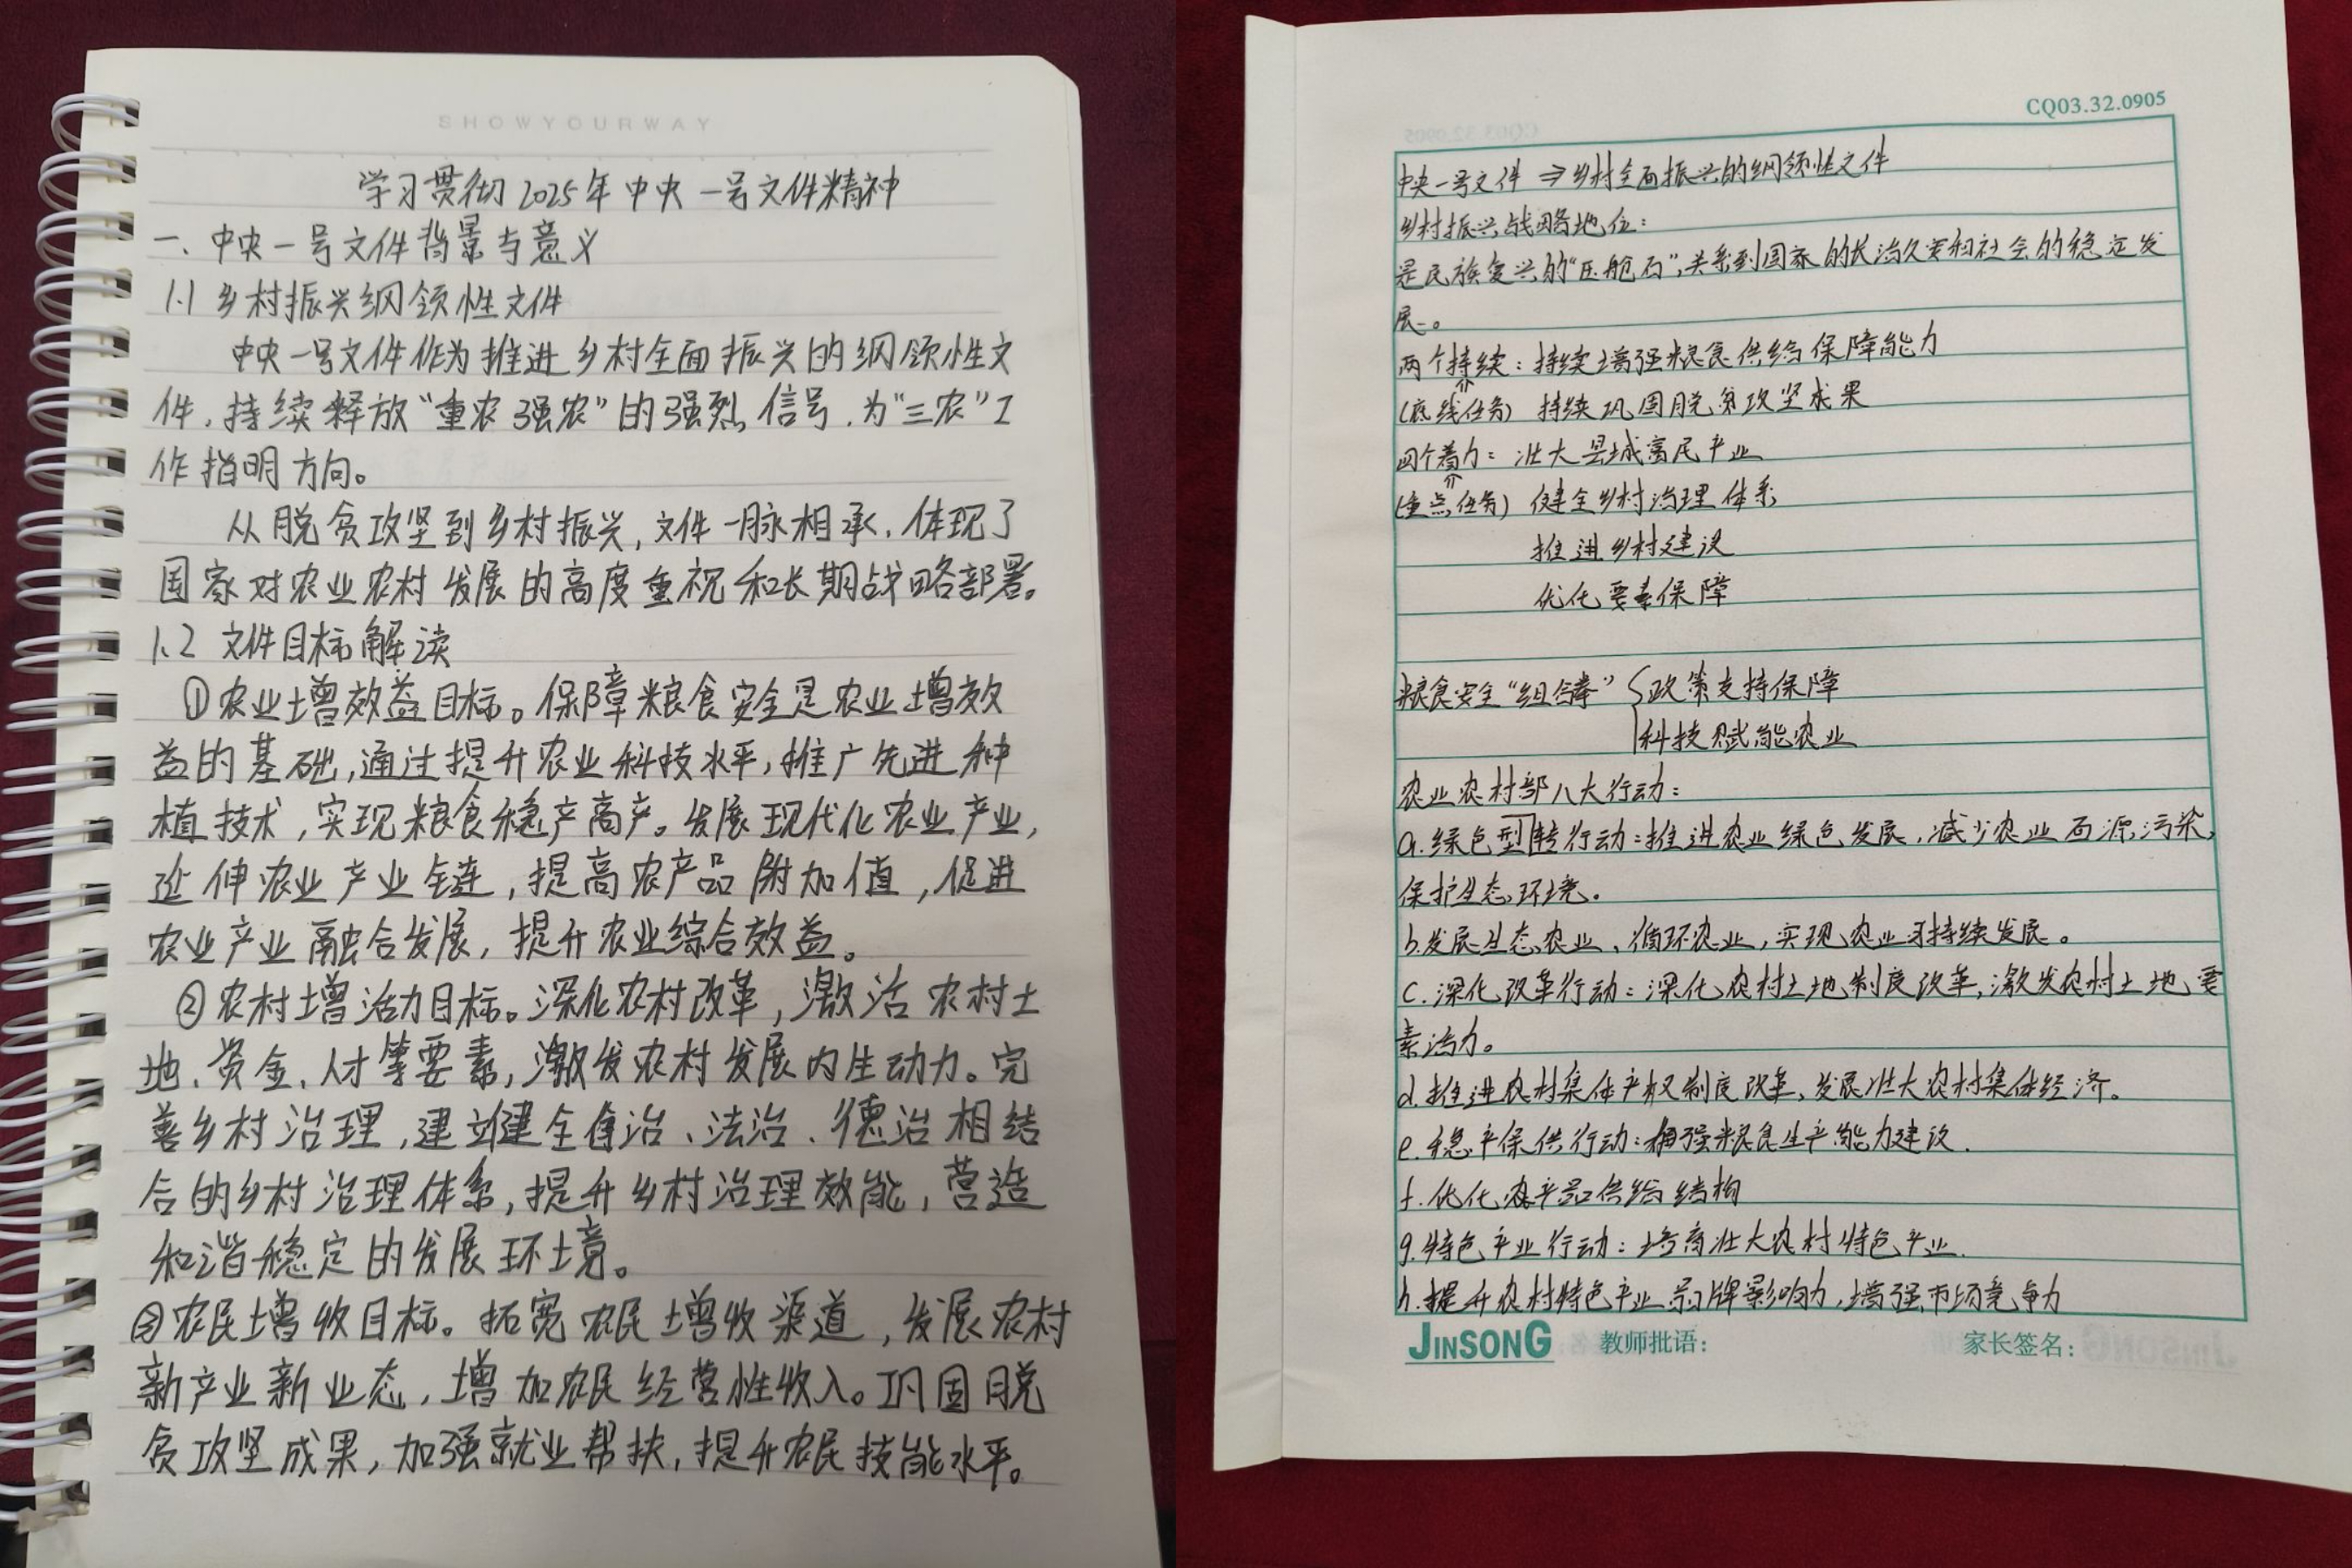 SHOWYOURWAY
学习贯彻2025年中央一号文件精神
一、中央一号文件背景与意义
1.1 乡村振兴纲领性文件
中央一号文件作为推进乡村全面振兴的纲领性文
件,持续释放“重农强农”的强烈信号,为“三农”工
作指明方向。
从脱贫攻坚到乡村振兴,文件一脉相承,体现了
国家对农业农村发展的高度重视和长期战略部署。
1.2 文件目标解读
①农业增效益目标。保障粮食安全是农业增效
益的基础,通过提升农业科技水平,推广先进种
植技术,实现粮食稳产高产。发展现代化农业产业,
延伸农业产业链,提高农产品附加值,促进
农业产业融合发展,提升农业综合效益。
②农村增活力目标。深化农村改革,激活农村土
地、资金、人才等要素,激发农村发展内生动力。完
善乡村治理,建立健全自治、法治、德治相结
合的乡村治理体系,提升乡村治理效能,营造
和谐稳定的发展环境。
③农民增收目标。拓宽农民增收渠道,发展农村
新产业新业态,增加农民经营性收入。巩固脱
贫攻坚成果,加强就业帮扶,提升农民技能水平。
CQ03.32.0905
中央一号文件⇒乡村全面振兴的纲领性文件
乡村振兴战略地位:
是民族复兴的“压舱石”,关系到国家的长治久安和社会的稳定发
展。
两个持续:持续增强粮食供给保障能力
(底线任务) 持续巩固脱贫攻坚成果
四个着力:壮大县域富民产业
(重点任务) 健全乡村治理体系
推进乡村建设
优化要素保障
粮食安全“组合拳”{政策支持保障
科技赋能农业
农业农村部八大行动:
a.绿色型转行动:推进农业绿色发展,减少农业面源污染,
保护生态环境。
b.发展生态农业、循环农业,实现农业可持续发展。
c.深化改革行动:深化农村土地制度改革,激发农村土地要
素活力。
d.推进农村集体产权制度改革,发展壮大农村集体经济。
e.稳产保供行动:增强粮食生产能力建设.
f.优化农产品供给结构
g.特色产业行动:培育壮大农村特色产业.
h.提升农村特色产业品牌影响力,增强市场竞争力
JINSONG 教师批语: 家长签名: